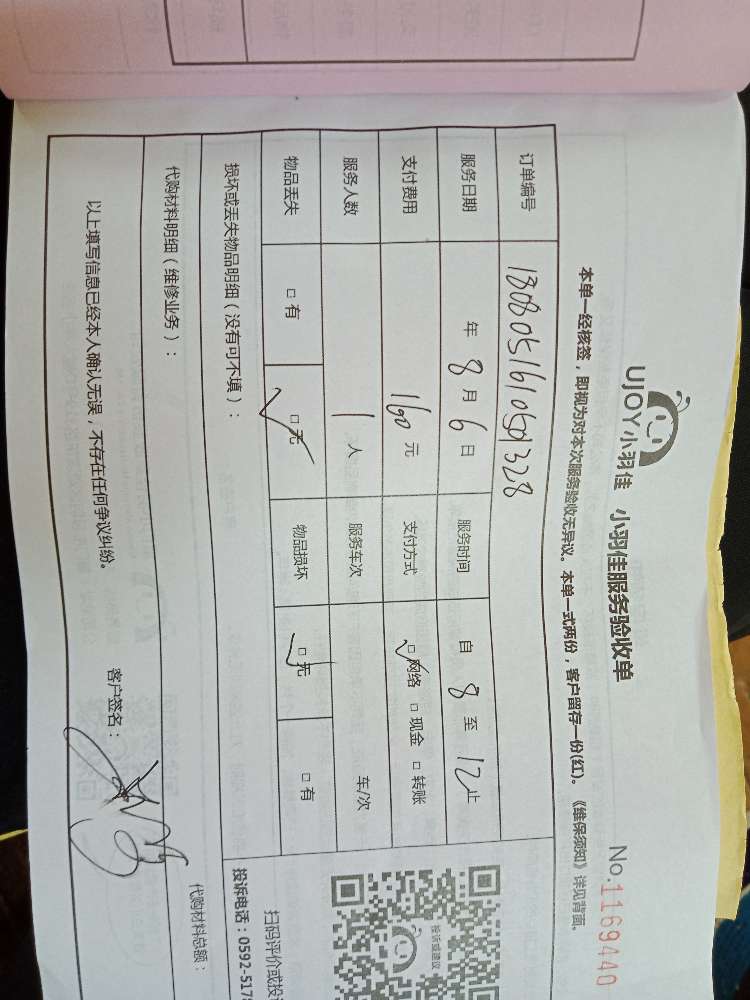 UJOY小羽佳 小羽佳服务验收单 No.1169440
本单一经核签，即视为对本次服务验收无异议。本单一式两份，客户留存一份(红)。《维保须知》详见背面。
订单编号 1808051610501328
服务日期 年8月6日 服务时间 自8至12止
支付费用 160元 支付方式 ☑网络 □现金 □转账
服务人数 1人 服务车次 车/次
物品丢失 □有 ☑无 物品损坏 ☑无 □有
损坏或丢失物品明细（没有可不填）：
代购材料明细（维修业务）： 代购材料总额：
以上填写信息已经本人确认无误，不存在任何争议纠纷。 客户签名：
投诉或建议
扫码评价或投
投诉电话：0592-517